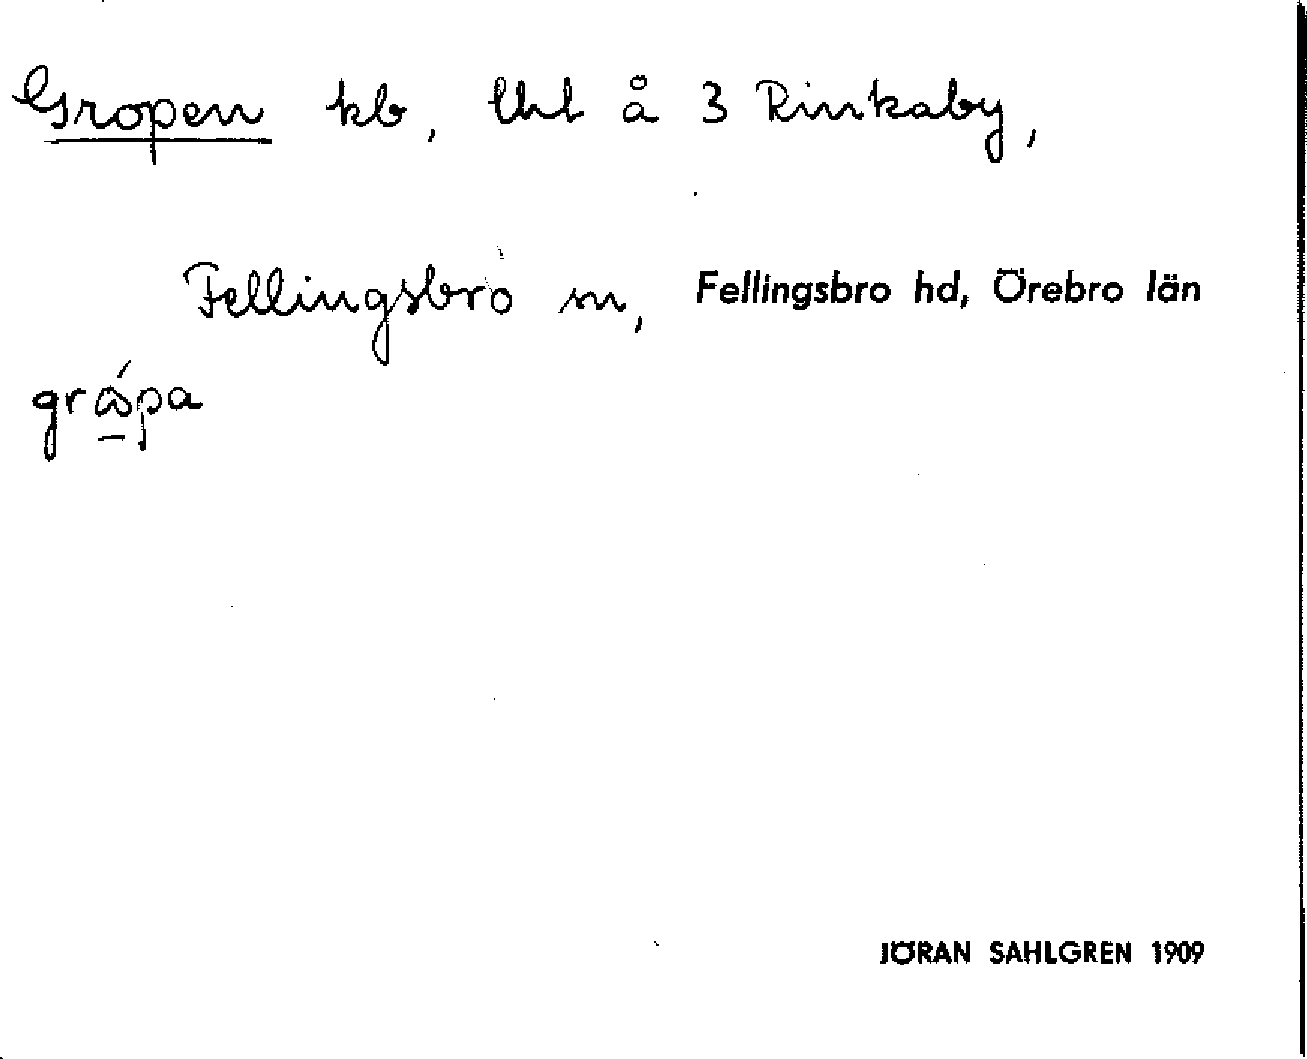 Gropen kb, lht å 3 Rinkaby,
Fellingsbro sn, Fellingsbro hd, Örebro län
JÖRAN SAHLGREN 1909